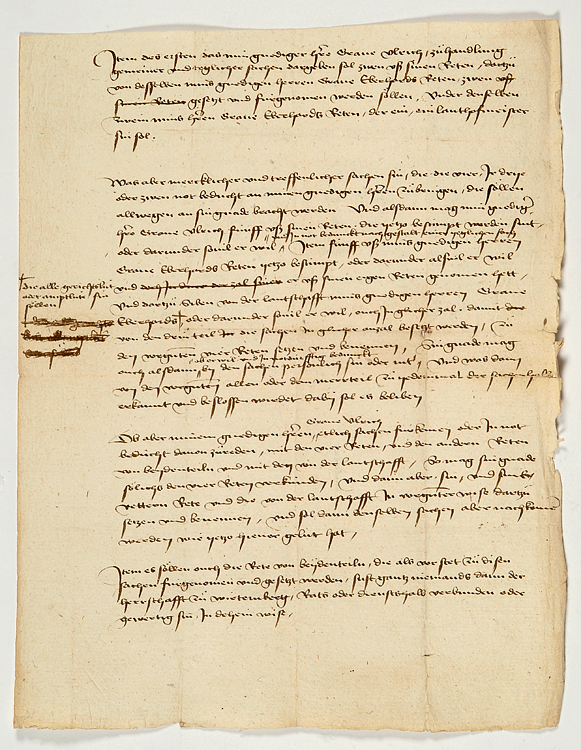 Item des ersten das min gnediger herre Graue Vlrich, zů handlung
gemeiner und teglicher sachen dargeben sol zwen vß sinen Reten, dartzů
von desselben mins gnedigen herren Graue Eberhards Reten, zwen vß
gesetzt und fürgenomen werden söllen, Vnder denselben
zwein mins herren Graue Eberhards Reten, der ein, ein lanthofmeister
sin sol.
Was aber mercklicher und treffenlicher sachen sin, die die vier, Ir drije
oder zwen not bedücht an minen gnedigen herren zübringen, die söllen
allwegen an sin gnade bracht werden. Vnd alsdann mag min gnediger
herre Graue Vlrich fünff vß sinen Reten, die yetzo bestimpt worden sint,
oder darunder souil er wil, Item fünff vß mins gnedigen herren
Graue Eberhards Reten yetzo bestimpt, oder darunder alsuil er wil
und er vß sinen eigen Reten genomen hett,
und dartzů Siben von der lantschafft mins gnedigen herren Graue
Eberhards oder darunder souil er wil, ouch In glicher zal, damit
von den drin teiln die sachen In glicher anzal besetzt werden, zů
den vorgnten vier Reten setzen und benennen, Sin gnade mag
ouch alsdann by den sachen persönlich sin oder nit, Vnd was dann
von den vorgnten allen oder dem merteil zů yedem mal der sachen halb
erkannt und beslossen wurdet daby sol es beliben
die alle gerichtslut
oder amptlüt sin
söllen
Graue Vlrich
Ob aber minem gnedigen herren, etlich sachen fürkomen oder In not
bedücht dauon züreden, mit den vier Reten, und den andern Reten
von beydenteiln und mit den von der lantschafft, So mag sin gnade
sölichs den vier Reten verkünden, Vnd dann aber, sin, und sins
vettern Rete und die von der lantschafft In vorgnter wise dartzů
setzen und benennen, und sol dann denselben sachen aber nachkomen
werden wie yetzo hieuor gelut hat,
Item es söllen ouch die Rete von beydenteiln, die als vor stet zů disen
sachen fürgenomen und gesetzt werden, sust gantz niemands dann der
herrschafft zů wirtemberg, Rats oder dienstshalb verbunden oder
gewertig sin, In dehein wise,